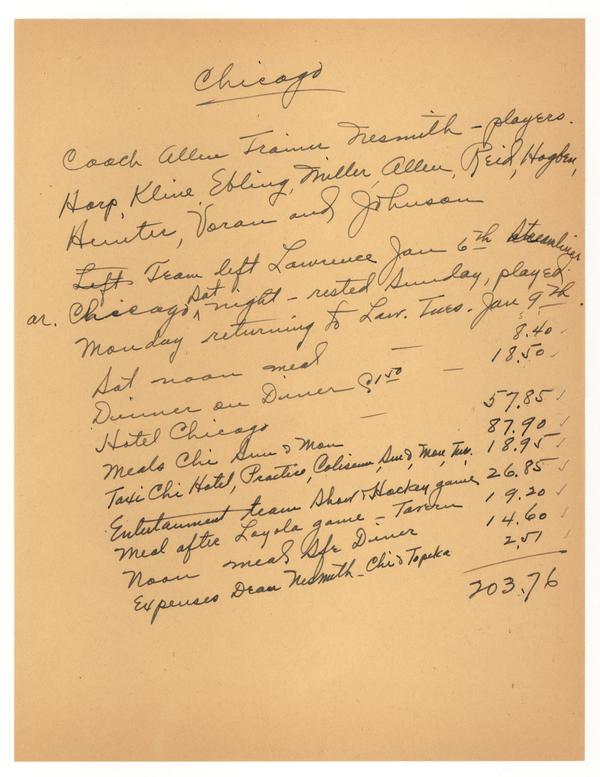 Chicago
Coach Allen Trainer Nesmith – players.
Harp, Kline, Ebling, Miller, Allen, Reid, Hogben,
Hunter, Voran and Johnson
Left Team left Lawrence Jan 6th Streamliner
ar. Chicago Sat night – rested Sunday, played
Monday returning to Law. Tues. Jan 9th.
Sat noon meal — 8.40
Dinner on Diner @1.50 — 18.50
Hotel Chicago — 57.85
Meals Chi Sun & Mon 87.90
Taxi Chi Hotel, Practice, Coliseum, Sun &, Mon, Tues. 18.95
Entertainment team Show & Hockey game 26.85
Meal after Loyola game – Tavern 19.20
Noon meal Sfe Diner 14.60
Expenses Dean Nesmith – Chi & Topeka 2.51
203.76